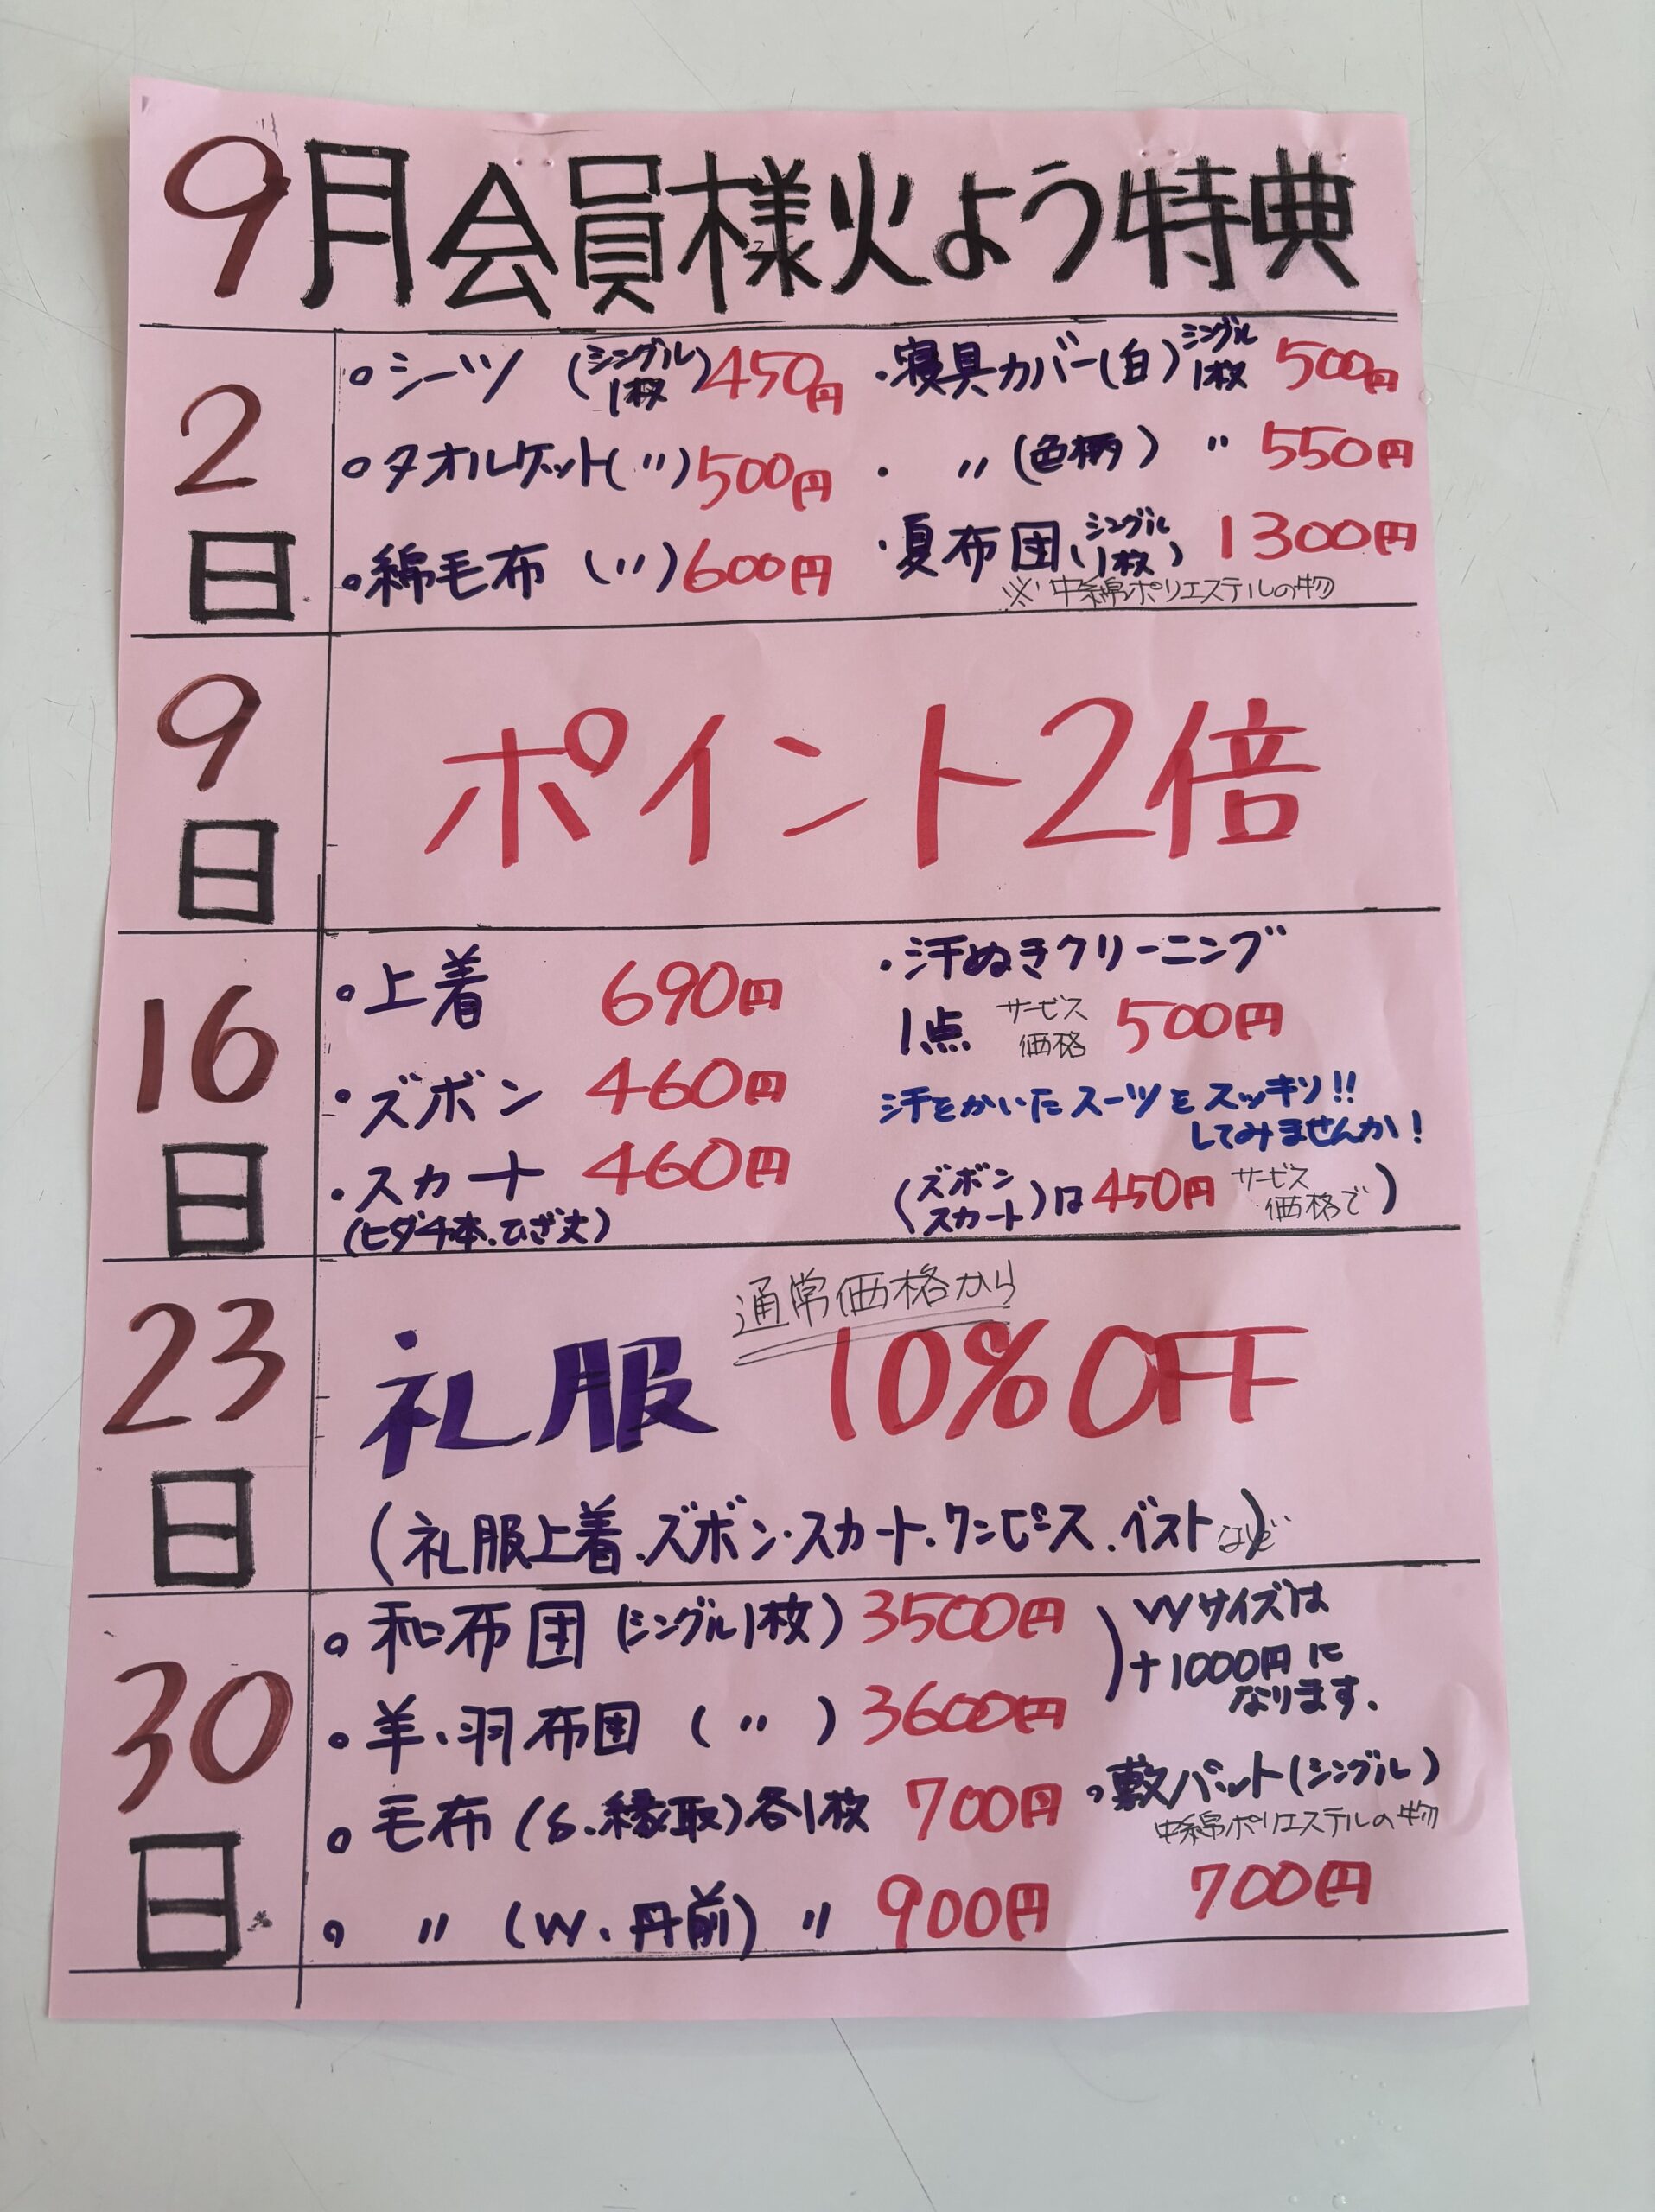 9月会員様火よう特典
2日
。シーツ (シングル1枚) 450円
。タオルケット(〃) 500円
。綿毛布 (〃) 600円
・寝具カバー(白) シングル1枚 500円
・ 〃 (色柄) 〃 550円
・夏布団(シングル1枚) 1300円
※中綿ポリエステルの物
9日
ポイント2倍
16日
・上着 690円
・ズボン 460円
・スカート 460円
(ヒダ4本、ひざ丈)
・汗ぬきクリーニング
1点 サービス価格 500円
汗をかいたスーツをスッキリ!!
してみませんか!
(ズボン スカート)は450円 サービス価格で)
23日
通常価格から
礼服 10%OFF
(礼服上着.ズボン.スカート.ワンピース.ベストなど)
30日
。和布団 (シングル1枚) 3500円
。羊、羽布団 (〃) 3600円
) Wサイズは
+1000円に
なります.
。毛布 (S、縁取)各1枚 700円
。 〃 (W、丹前) 〃 900円
。敷パット(シングル)
中綿ポリエステルの物
700円